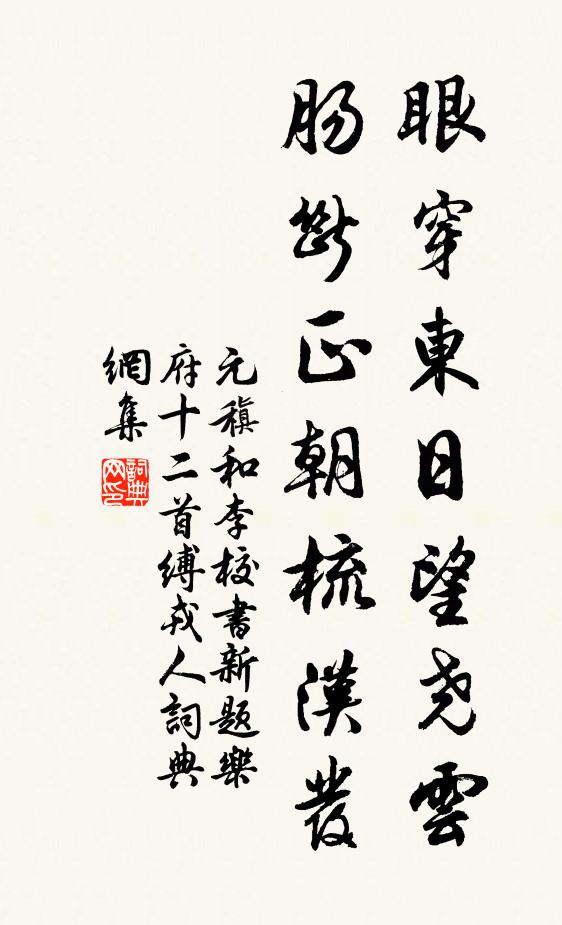 眼穿東日望尧雲
肠斷正朝梳漢發
元稹和李校書新题樂
府十二首缚戎人詞典
網集
詞典
网印